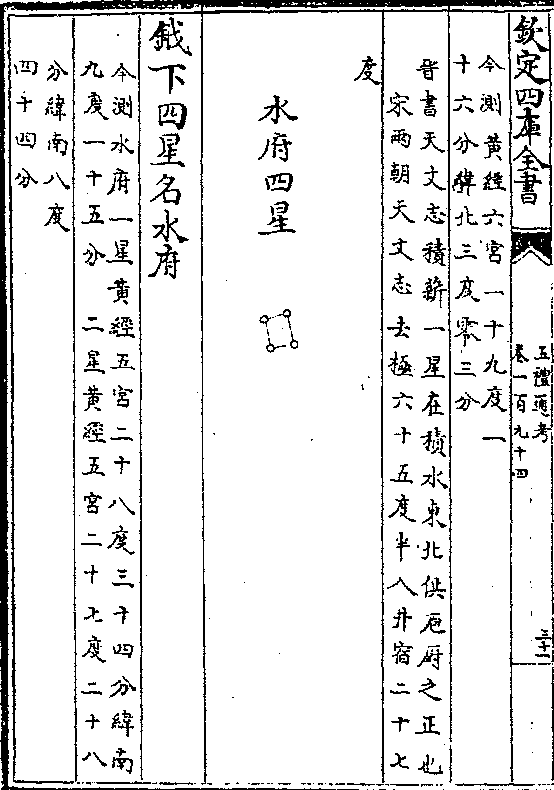 欽定四庫全書
五禮通考
卷一百九十四
三十一
今測黃經六宮一十九度一
十六分緯北三度零三分
晉書天文志積薪一星在積水東北供庖厨之正也
宋兩朝天文志去極六十五度半入井宿二十七
度
水府四星
鉞下四星名水府
今測水府一星黃經五宮二十八度三十四分緯南
九度一十五分 二星黃經五宮二十七度二十八
分緯南八度
四十四分